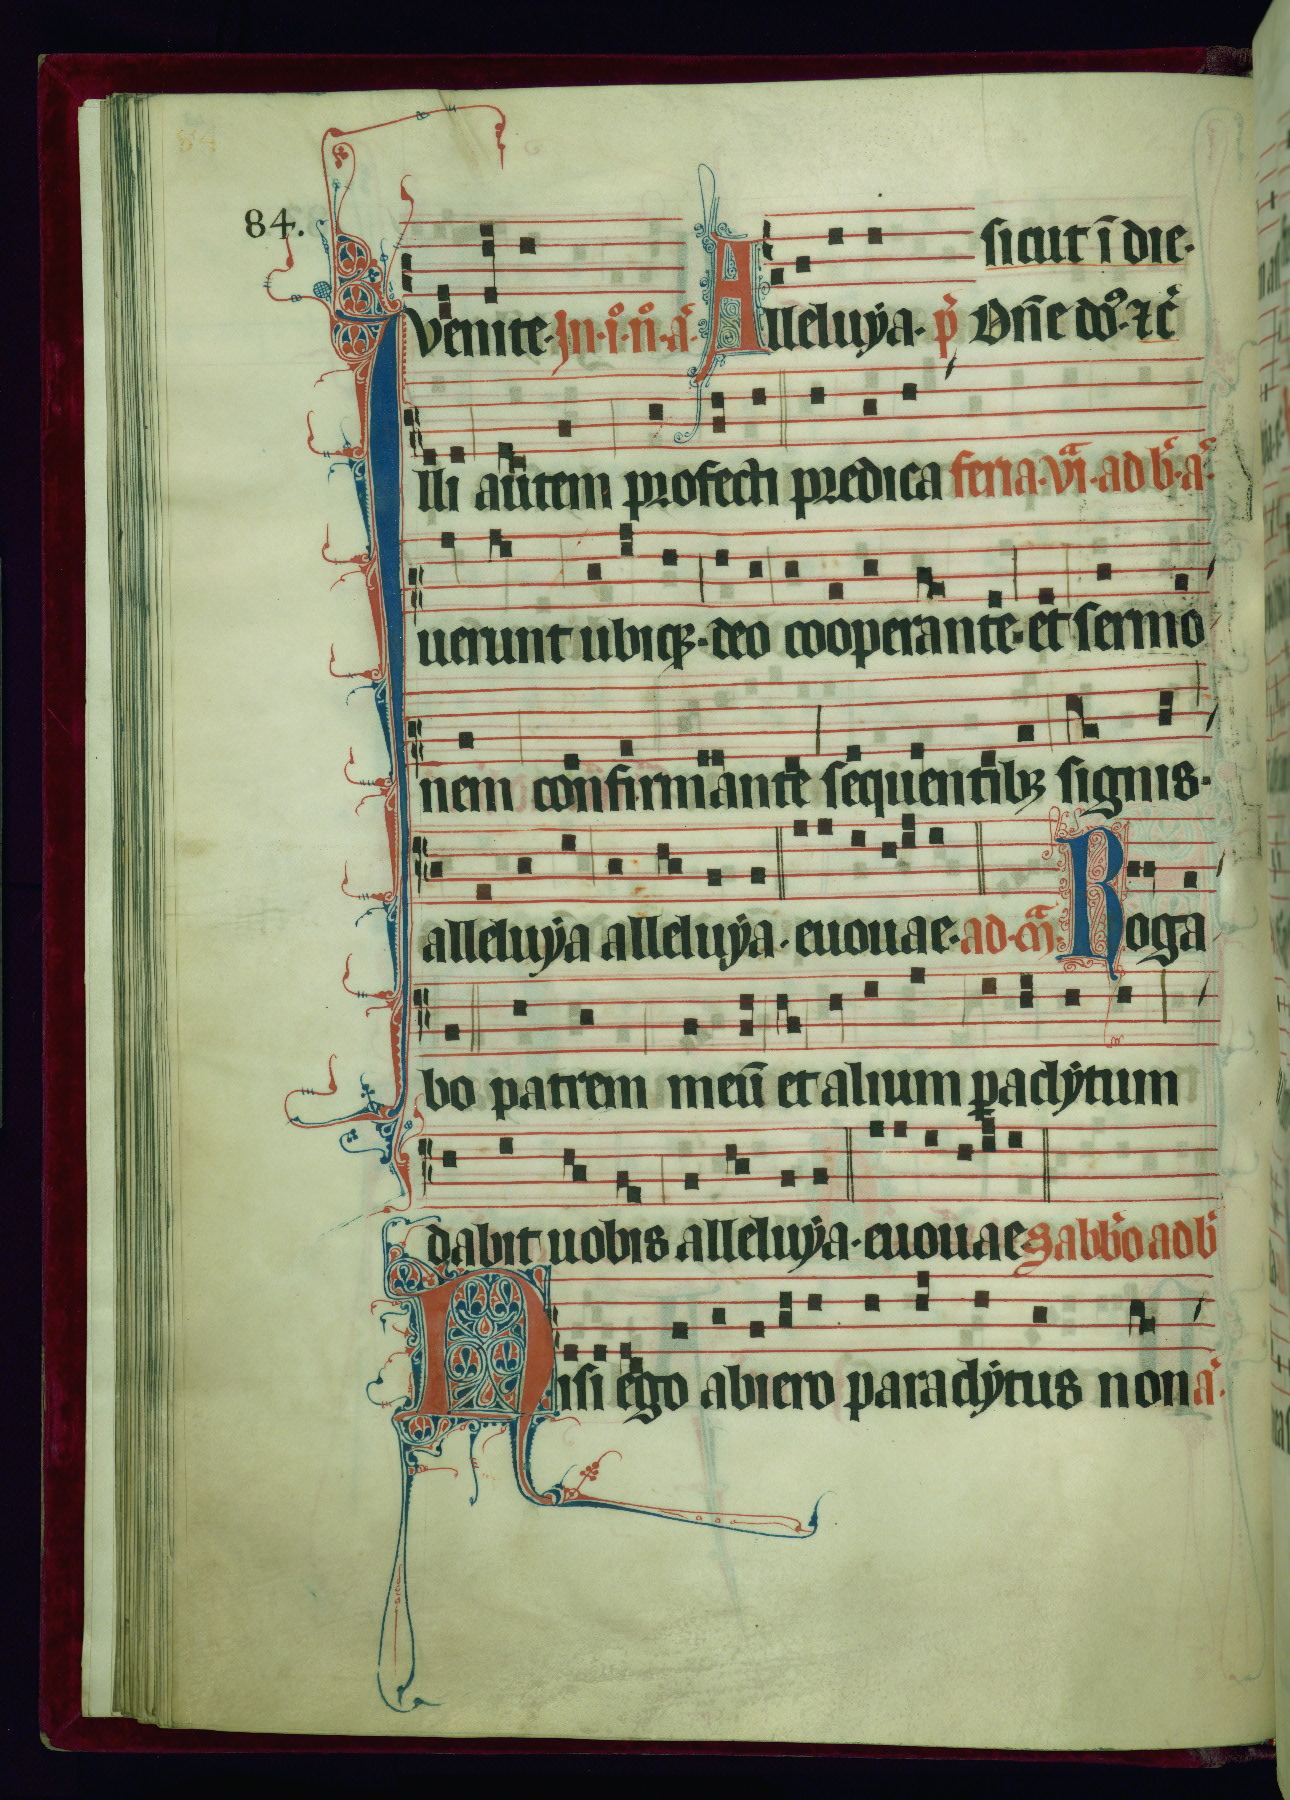 84.
sicut ī die·
venite· In·i·n̄·a̾· Alleluya· p̾ Dn̄e do᷒·⁊c̾
Illi autem profecti predica feria·vi·ad b̾·a̾·
uerunt ubiqꝫ·deo cooperante·et sermo
nem confirmante sequentibꝫ signis·
alleluya alleluya·euouae·ad·m̄· Roga
bo patrem meū et alium ꝑaclytum
dabit uobis alleluya·euouae Sabb̾o ad b̾
Nisi ego abiero paraclytus non a̾·